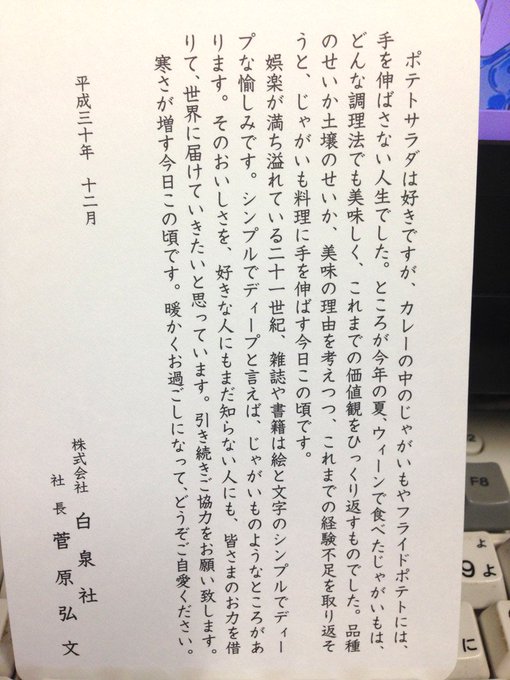 ポテトサラダは好きですが、カレーの中のじゃがいもやフライドポテトには、
手を伸ばさない人生でした。ところが今年の夏、ウィーンで食べたじゃがいもは、
どんな調理法でも美味しく、これまでの価値観をひっくり返すものでした。品種
のせいか土壌のせいか、美味の理由を考えつつ、これまでの経験不足を取り返そ
うと、じゃがいも料理に手を伸ばす今日この頃です。
娯楽が満ち溢れている二十一世紀、雑誌や書籍は絵と文字のシンプルでディー
プな愉しみです。シンプルでディープと言えば、じゃがいものようなところがあ
ります。そのおいしさを、好きな人にもまだ知らない人にも、皆さまのお力を借
りて、世界に届けていきたいと思っています。引き続きご協力をお願い致します。
寒さが増す今日この頃です。暖かくお過ごしになって、どうぞご自愛ください。
平成三十年 十二月
株式会社 白泉社
社長 菅原弘文
F8
2
9
ょ
よ
に